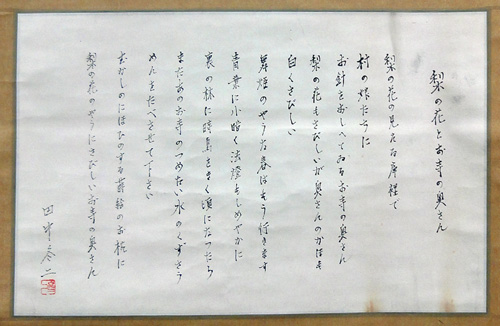 梨の花とお寺の奥さん
梨の花の見える庫裡で
村の娘たちに
お針をおしへてゐるお寺の奥さん
梨の花もさびしいが奥さんのかほも
白くさびしい
のやうな春はもう行きます
青葉に小暗く法燈もしめやかに
裏の林に時鳥をきく頃になつたら
またあのお寺のつめたい水のくずきり
めんをたべさせて下さい
むかしのにほひのする のお椀に
梨の花のやうにさびしいお寺の奥さん
田中冬二